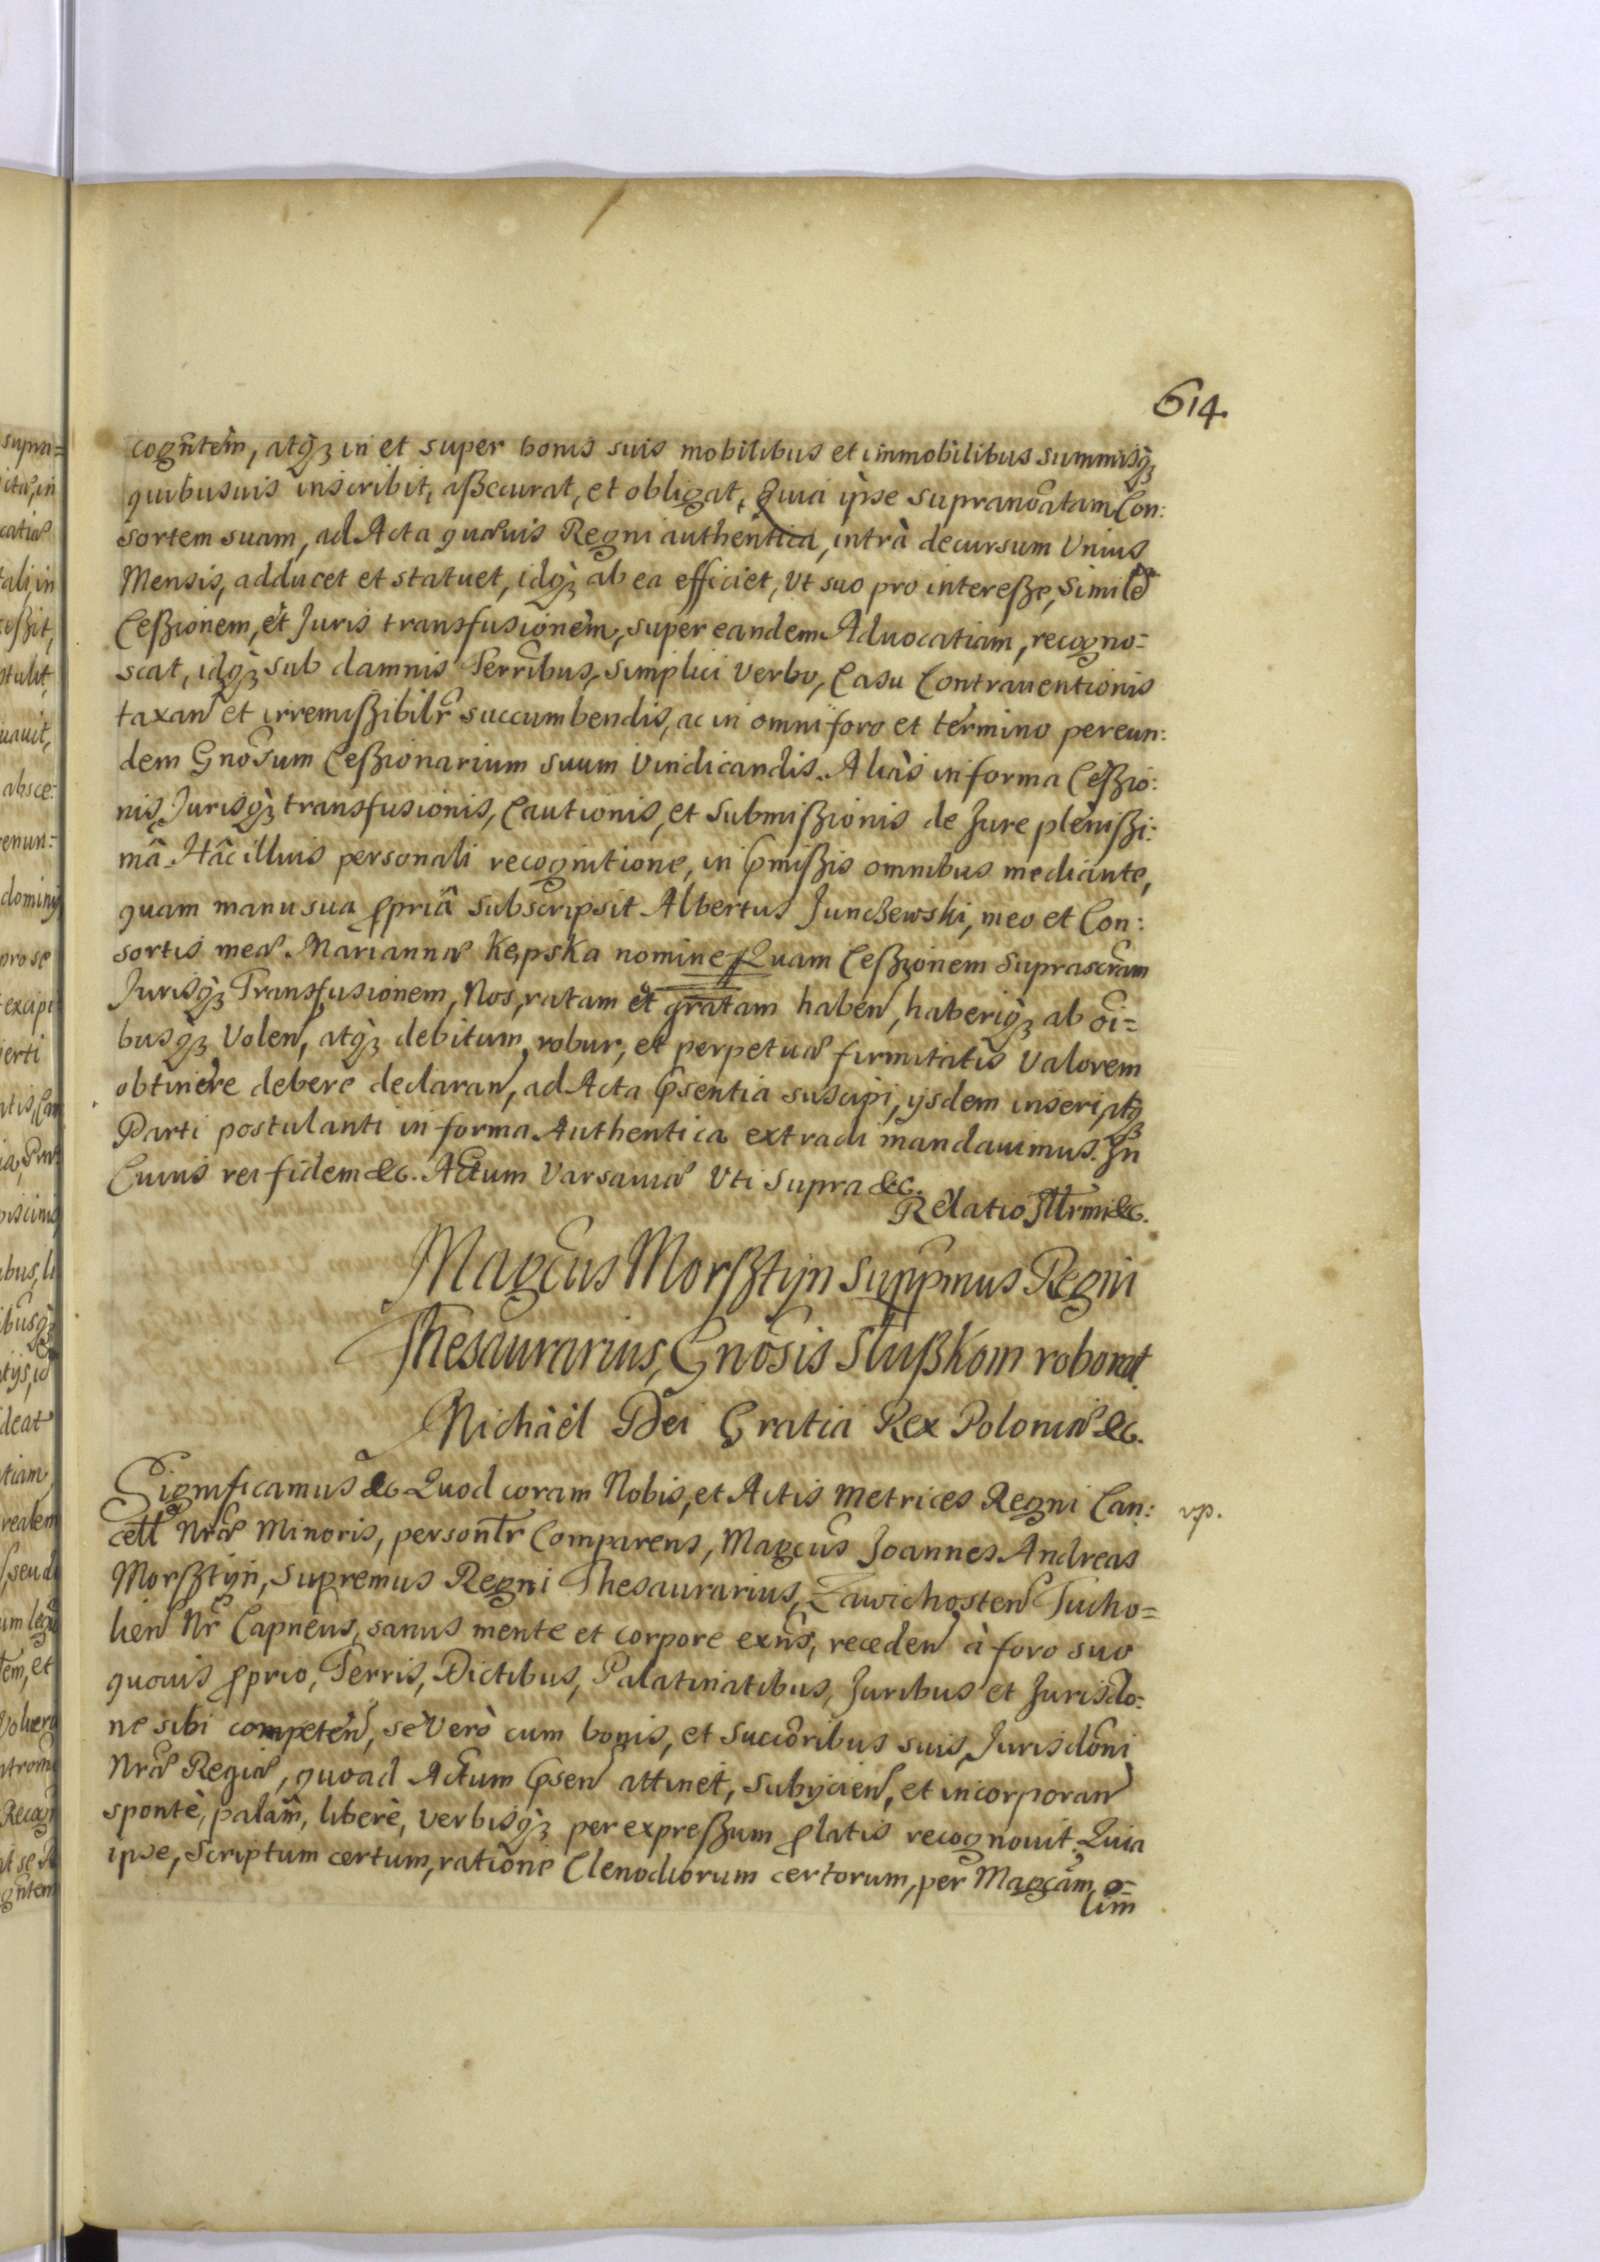 614.
cogñtem, atq̀ꝫ in et super bonis suis mobilibus et immobilibus summisq̀ꝫ
quibusuis inscribit, aßecurat, et obligat, Quia ipse supranoãtam Con:
sortem suam, ad Acta quæuis Regni authentica, intrà decursum Unius
Mensis, adducet et statuet, idq̀ꝫ ab ea efficiet, Ut suo pro intereße, simile
Ceßionem, et Juris transfusionem, super eandem Aduocatiam, recogno=
scat, idq̀ꝫ sub damnis Terribus, simplici Verbo, Casu Contrauentionis
taxan et irremißibilr succumbendis, ac in omni foro et termino per eun:
dem Gnosum Ceßionarium suum Vindicandis. Aliàs in forma Ceßio:
nis, Jurisq̀ꝫ transfusionis, Cautionis, et Submißionis de Jure plenißi:
mâ. Hâc illius personali recognitione, in p̃mißis omnibus mediante,
quam manu sua ꝓpriâ subscripsit Albertus Junczewski, meo et Con:
sortis meæ Mariannæ Kępska nomine. Quam Ceßionem suprascr̃am
Jurisq̀ꝫ Transfusionem, Nos, ratam et gratam haben, haberiq̀ꝫ ab õi=
busq̀ꝫ Volen, atq̀ꝫ debitum, robur, et perpetuæ firmitatis Valorem
obtinere debere declaran, ad Acta p̃sentia suscipi, ijsdem inseri, atq̀ꝫ
Parti postulanti in forma Authentica extradi mandauimus. In
Cuius rei fidem &c. Actum Varsauiæ Uti Supra &c.
Relatio Illrmi &c.
Magcus Morßtyn Supp̃mus Regni
Thesaurarius, Gnosis Slußkom roborat.
Michäël Dei Gratia Rex Poloniæ &c.
Significamus &c Quod coram Nobis, et Actis Metrices Regni Can: vp.
cell Nræ Minoris, personlr Comparens, Magcus Joannes Andreas
Morßtyn, Supremus Regni Thesaurarius, Zawichosten Tucho=
lien Nr Capneus, sanus mente et corpore exñs, receden à foro suo
quouis ꝓprio, Terris, Dictibus, Palatinatibus, Juribus et Jurisdo:
ne sibi competen, se Verò cum bonis, et Succoribus suis, Jurisdoni
Nræ Regiæ, quoad Actum p̃sen attinet, Subijcien, et incorporan
spontè, palàm, liberè, Verbisq̀ꝫ per expreßum ꝓlatis recognouit. Quia
ipse, Scriptum certum, ratione Clenodiorum certorum, per Magcam o=
lim